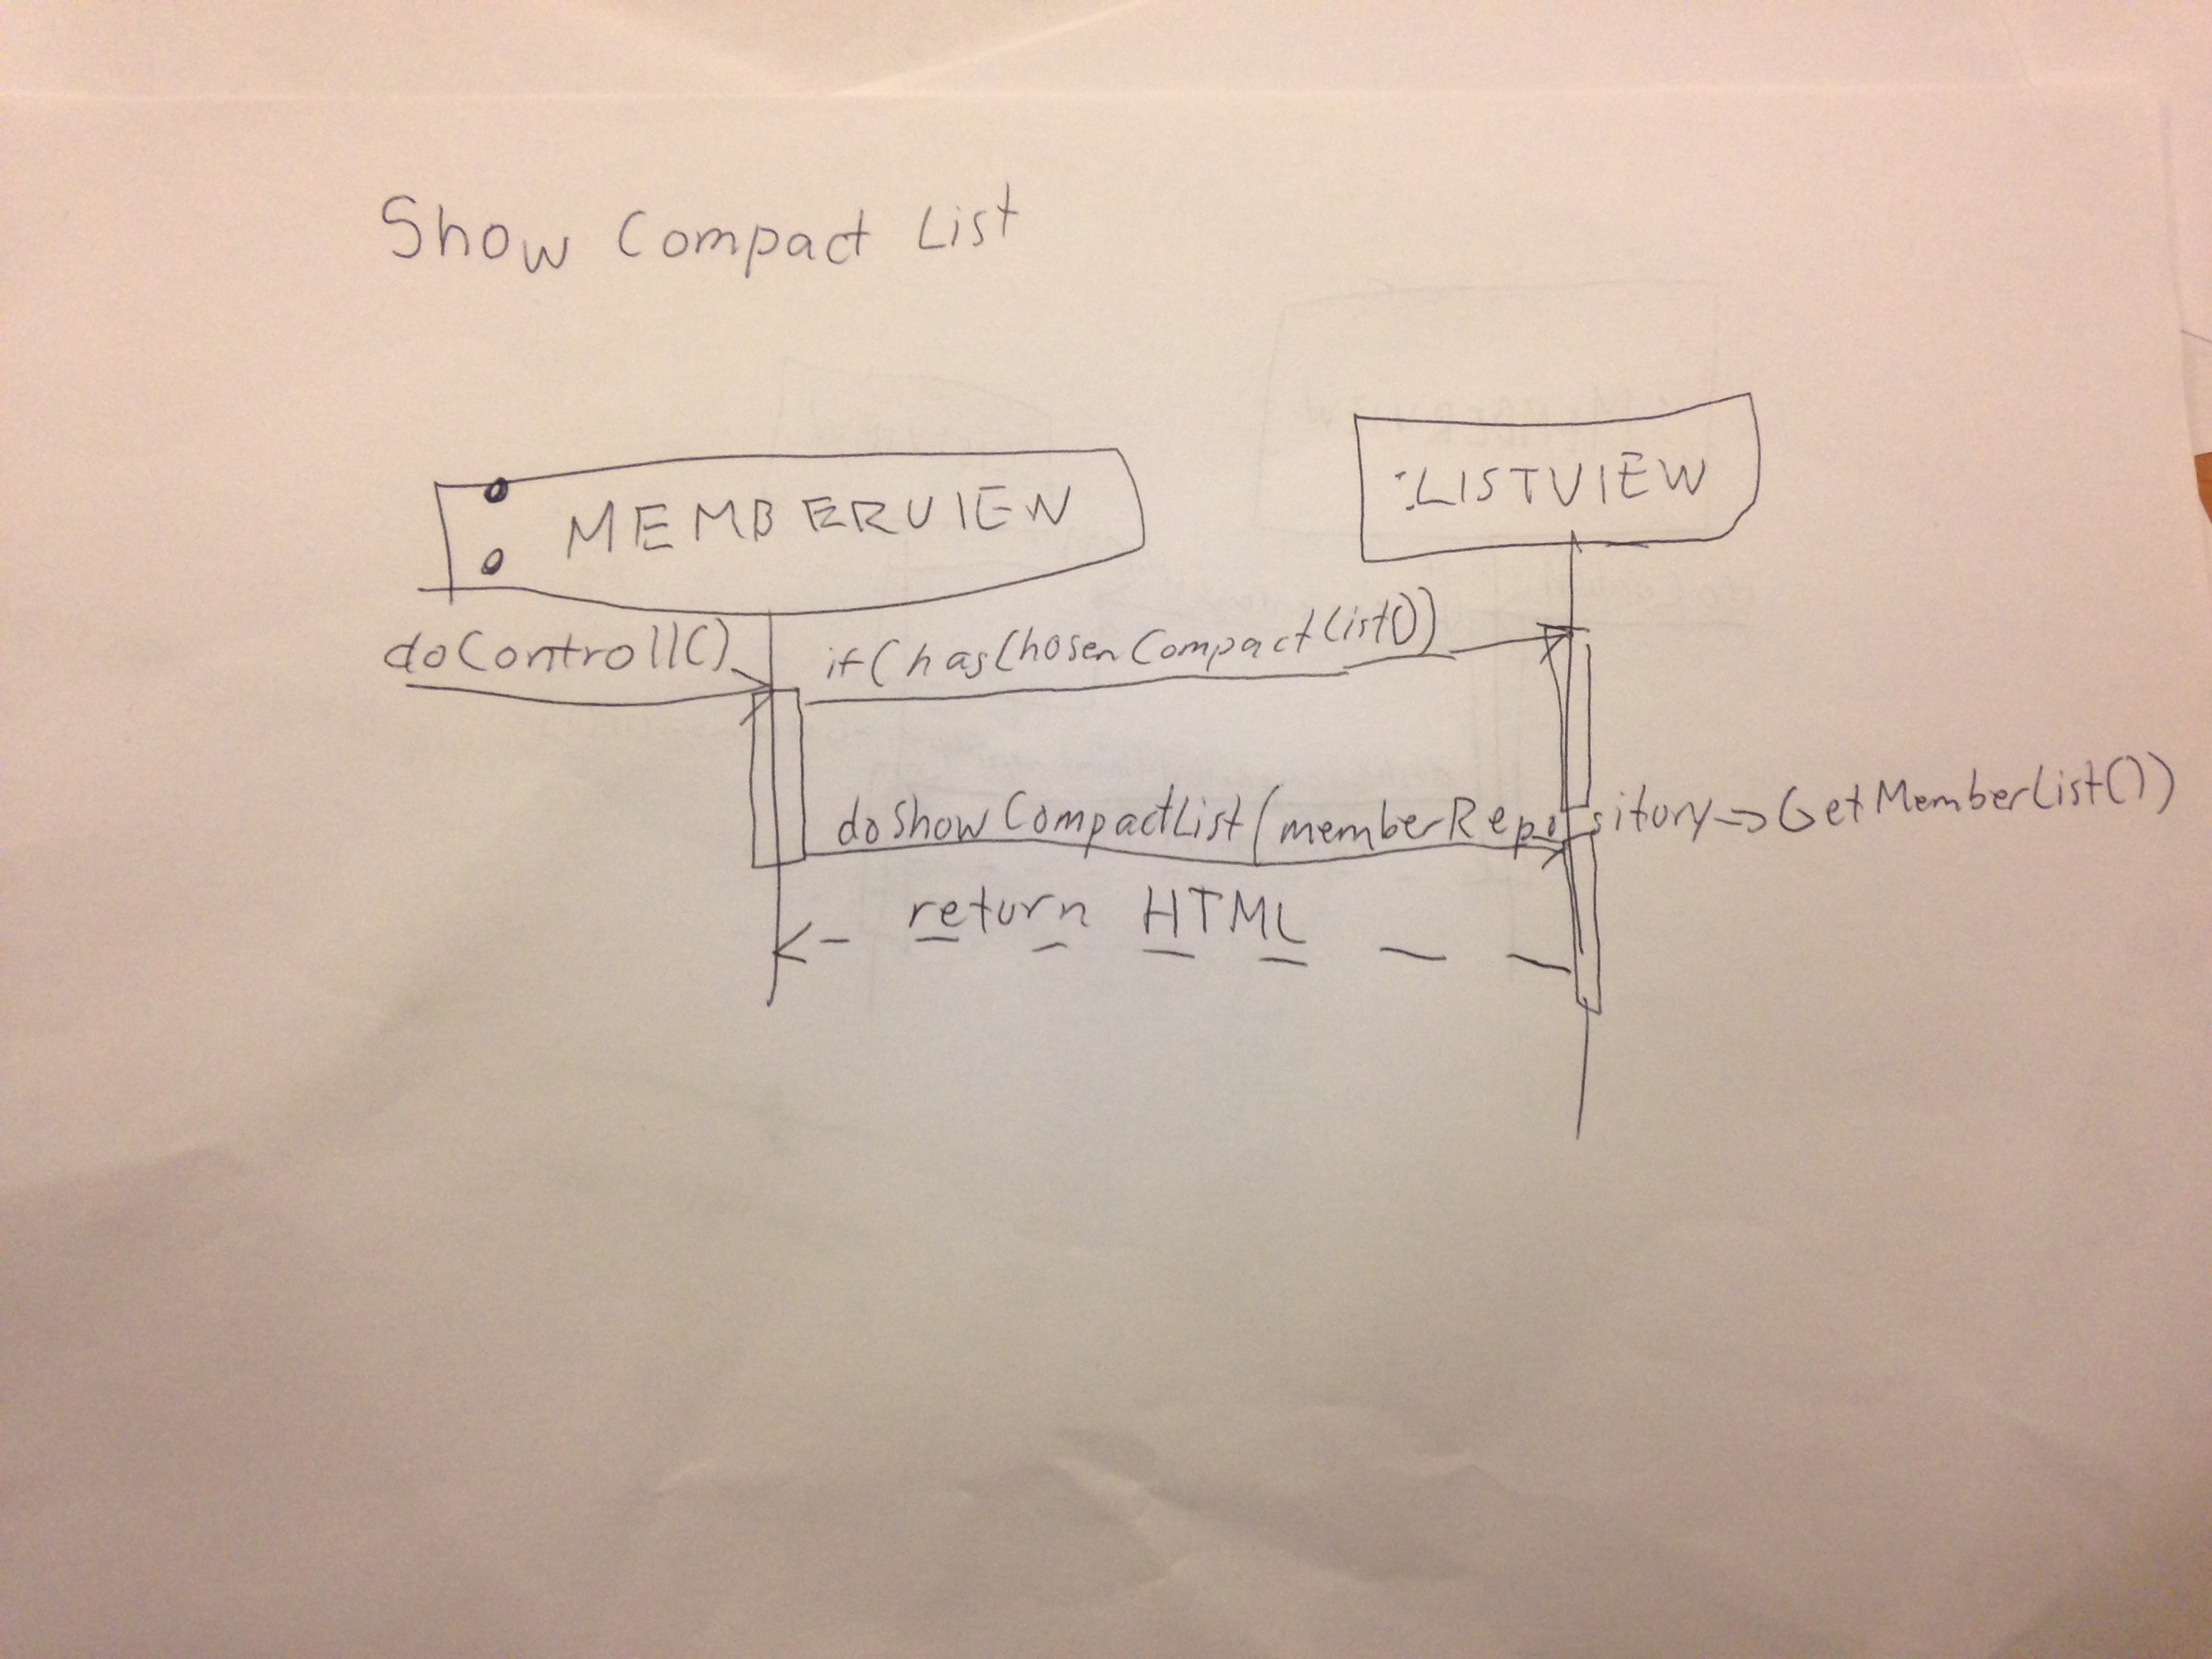 Show Compact List
: MEMBERVIEW
:LISTVIEW
doControll()
if(hasChosenCompactList())
doShowCompactList(memberRepository->GetMemberList())
return HTML